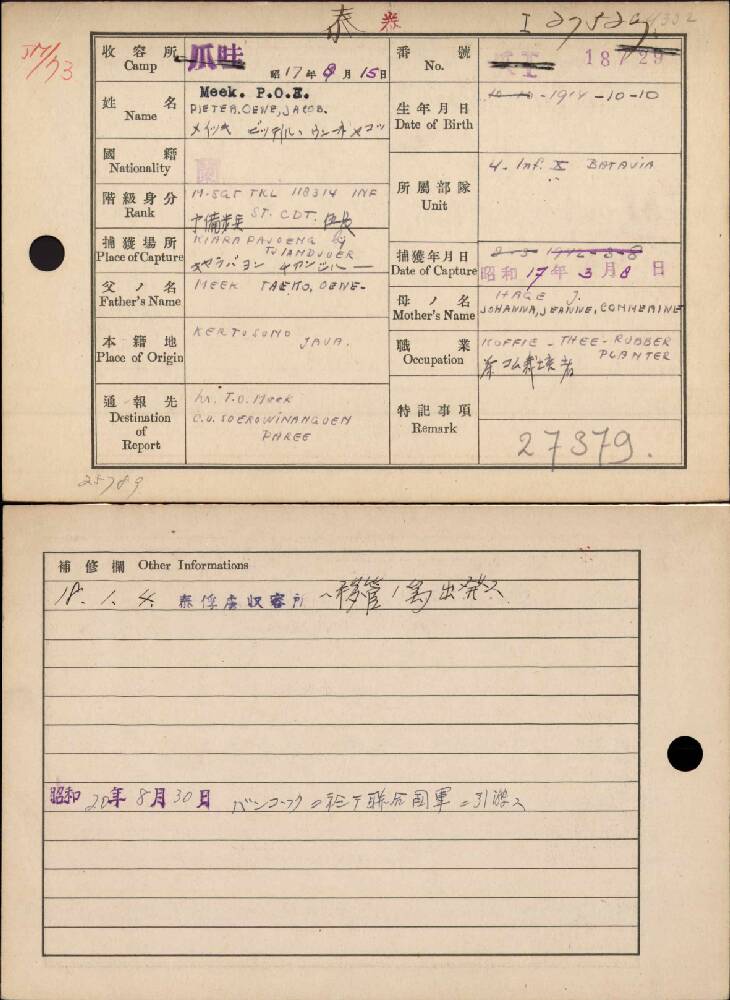 泰
JM/73
収容所 Camp 爪哇 昭17年8月15日
番號 No. 爪王 18729
姓名 Name Meek. P.O.J.
PIETER, OENE, JACOB.
生年月日 Date of Birth 1914-10-10
國籍 Nationality 蘭
所屬部隊 Unit 4. Inf. X BATAVIA
階級身分 Rank M-SGT TKL 118314 INF
ST. CDT.
捕獲場所 Place of Capture KIARA PAJOENG by
TJIANDJOER
捕獲年月日 Date of Capture 昭和17年3月8日
父ノ名 Father's Name MEEK TAEKO, OENE-
母ノ名 Mother's Name HAGE J.
JOHANNA, JEANNE,
本籍地 Place of Origin KERTOSONO JAVA.
職業 Occupation KOFFIE - THEE - RUBBER
PLANTER
通報先 Destination of Report hr. T.O. Meek
C.O. SOEROWINANGOEN
PAREE
特記事項 Remark
27379.
25789
補修欄 Other Informations
18. 1. 4. 泰俘虜収容所ヘ移管ノ為出発ス
昭和20年8月30日 バンコークニ於テ聯合国軍ニ引渡ス